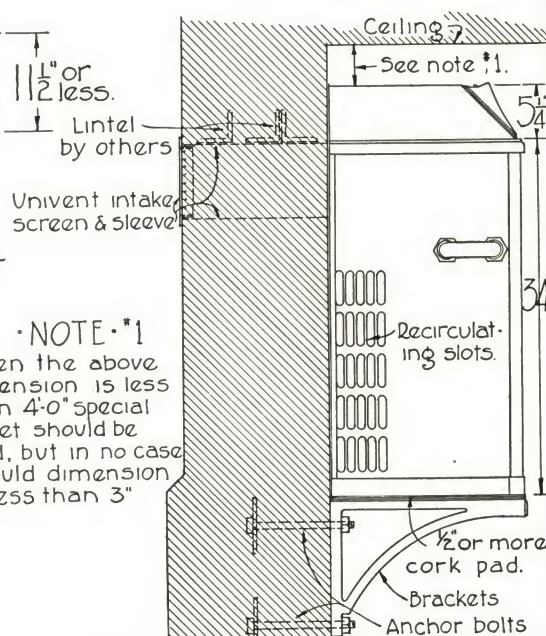 Ceiling
See note #1.
11 1/2" or
less.
5 1/4
Lintel
by others
Univent intake
screen & sleeve
34
· NOTE · #1
en the above
ension is less
n 4'-0" special
et should be
d, but in no case
uld dimension
less than 3"
Recirculat-
ing slots.
1/2" or more
cork pad.
Brackets
Anchor bolts